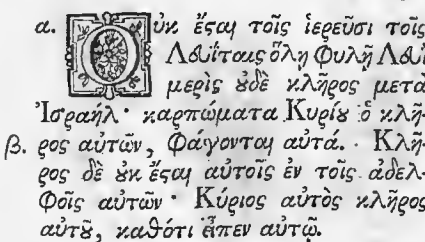 α. Οὐκ ἔσαι τοῖς ἱερεῦσι τοῖς
Λευίταις ὅλῃ φυλῇ Λευὶ
μερὶς οὐδὲ κλῆρος μετὰ
Ἰσραήλ· καρπώματα Κυρίου ὁ κλῆ-
β. ρος αὐτῶν, φάγονται αὐτά. Κλῆ-
ρος δὲ οὐκ ἔσαι αὐτοῖς ἐν τοῖς ἀδελ-
φοῖς αὐτῶν· Κύριος αὐτὸς κλῆρος
αὐτοῦ, καθότι εἶπεν αὐτῷ.